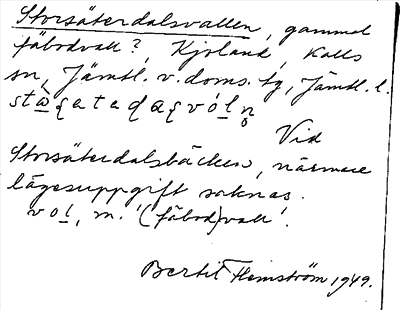 Storsäterdalsvallen, gammal
fäbodvall?, Kjoland, Kalls
sn, Jämtl. v. doms. tg, Jämtl. l.
Vid
Storsäterdalsbäcken, närmare
lägesuppgift saknas.
vol, m. '(fäbod)vall'.
Bertil Flemström 1949.